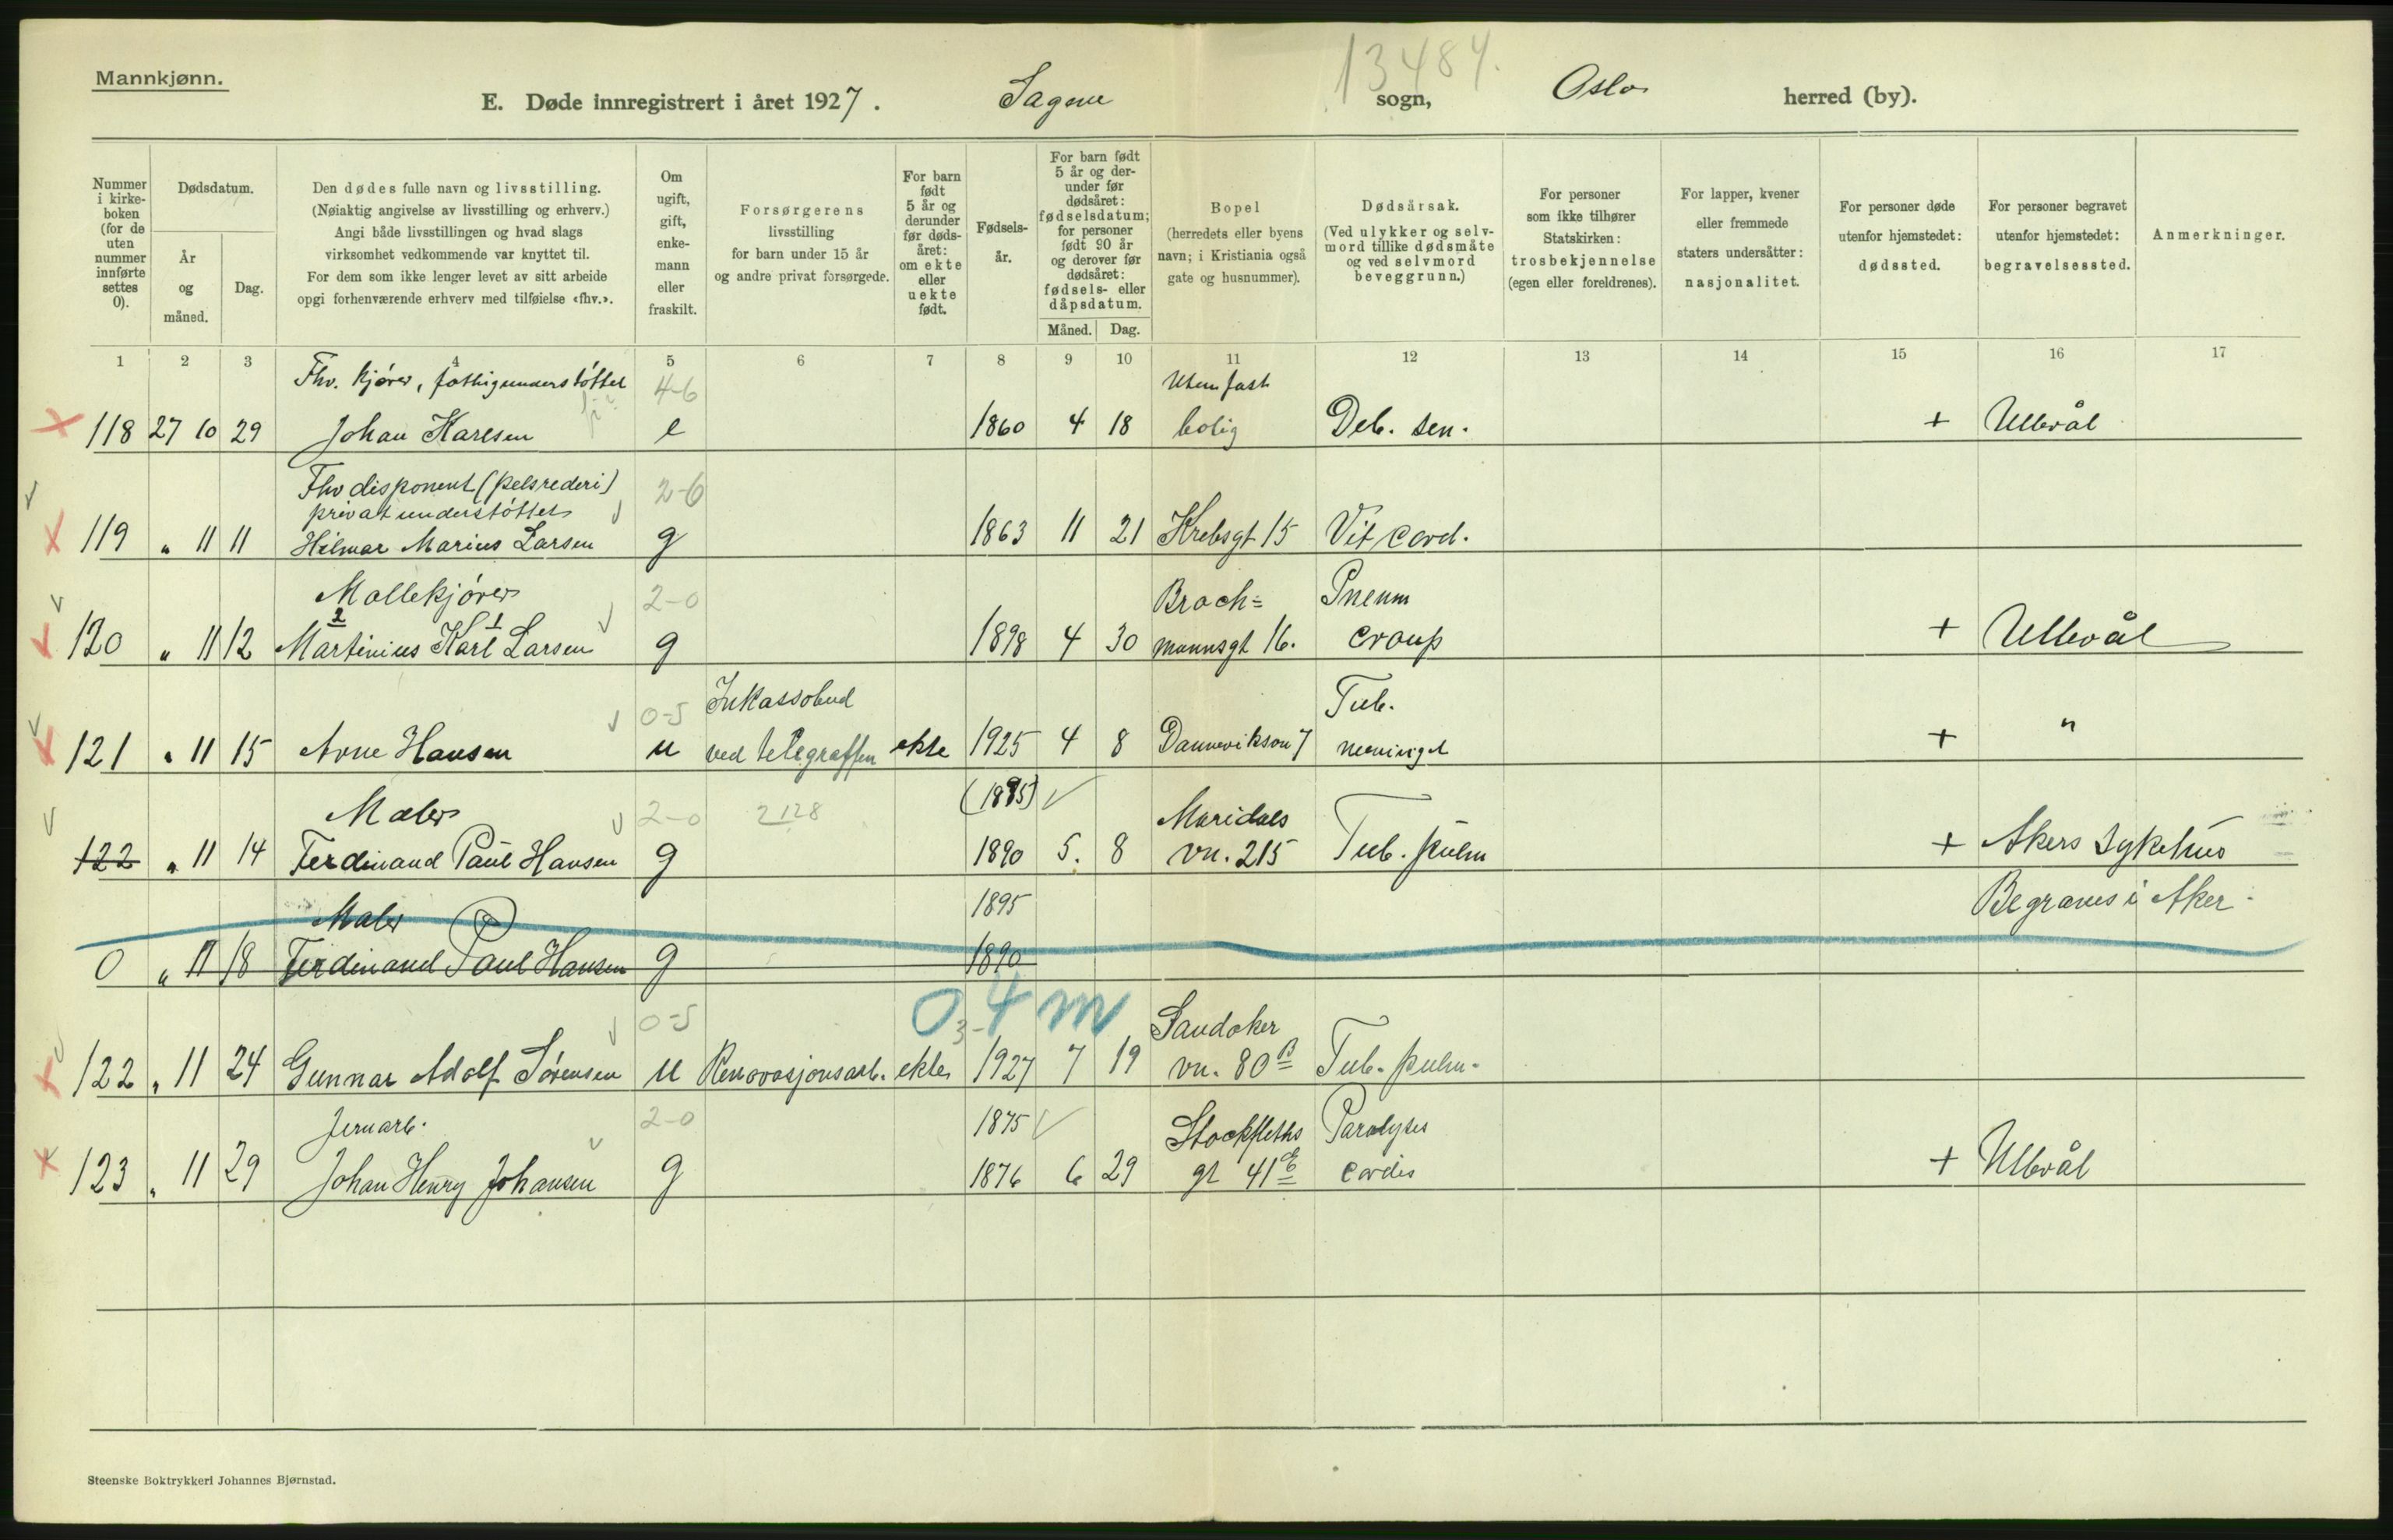 Mannkjønn.
13484.
E. Døde innregistrert i året 1927. Sagene sogn, Oslo herred (by).
Nummer i kirke-boken (for de uten nummer innførte settes 0).
Dødsdatum.
År og måned.
Dag.
Den dødes fulle navn og livsstilling.
(Nøiaktig angivelse av livsstilling og erhverv.)
Angi både livsstillingen og hvad slags
virksomhet vedkommende var knyttet til.
For dem som ikke lenger levet av sitt arbeide
opgi forhenværende erhverv med tilføielse «fhv.».
Om ugift, gift, enke-mann eller fraskilt.
Forsørgerens
livsstilling
for barn under 15 år
og andre privat forsørgede.
For barn født 5 år og derunder før døds-året: om ekte eller uekte født.
Fødsels-år.
For barn født 5 år og der-under før dødsåret: fødselsdatum; for personer født 90 år og derover før dødsåret: fødsels- eller dåpsdatum.
Måned. Dag.
Bopel
(herredets eller byens
navn; i Kristiania også
gate og husnummer).
Dødsårsak.
(Ved ulykker og selv-
mord tillike dødsmåte
og ved selvmord
beveggrunn.)
For personer
som ikke tilhører
Statskirken:
trosbekjennelse
(egen eller foreldrenes).
For lapper, kvener
eller fremmede
staters undersåtter:
nasjonalitet.
For personer døde
utenfor hjemstedet:
dødssted.
For personer begravet
utenfor hjemstedet:
begravelsessted.
Anmerkninger.
1 2 3 4 5 6 7 8 9 10 11 12 13 14 15 16 17
Fhv. kjører, fattigunderstøttet 4-6 Uten fast
118 27 10 29 Johan Karlsen e 1860 4 18 bolig Deb. sen. + Ullevål
Fhv disponent (pelsrederi) 2-6
privat understøttet
119 " 11 11 Hilmar Marius Larsen g 1863 11 21 Krebsgt 15 Vit cord.
Mallekjører 2-0 Brach= Pneum
2 1
120 " 11 12 Martinius Karl Larsen g 1898 4 30 mannsgt 16. croup + Ullevål
0-5 Inkassobud Tub.
121 " 11 15 Arne Hansen u ved telegraffen ekte 1925 4 8 Dannevikson 7 meningit + "
Maler 2-0 2128 (1895) Maridals
122 " 11 14 Ferdinand Paul Hansen g 1890 5. 8 vn. 215 Tub. pulm + Akers sykehus
Maler 1895 Begraves i Aker.
0 " 11 18 Ferdinand Paul Hansen g 1890
0-4 m
0-5 3 Sandaker
122 " 11 24 Gunnar Adolf Sørensen u Renovasjonsarb. ekte 1927 7 19 vn. 80 B Tub. pulm.
Jernarb. 2-0 1875 Stockfleths Paralysis
123 " 11 29 Johan Henry Johansen g 1876 6 29 gt 41 E cordis + Ullevål
Steenske Boktrykkeri Johannes Bjørnstad.